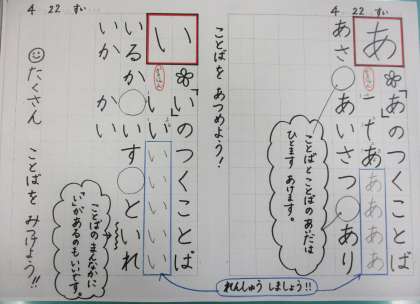 4 22 すい
あ
「あ」のつくことば
一 ナ あ あ あ あ あ
あさ○あいさつ○あり
ことばとことばのあいだは
ひとます あけます。
ことばを あつめよう!
れんしゅう しましょう!!
4 22 すい
い
「い」のつくことば
い い い い い い
いるか○いす○といれ
いか かい
ことばの まんなかに
「い」があるのも いいです。
たくさん ことばを みつけよう!!